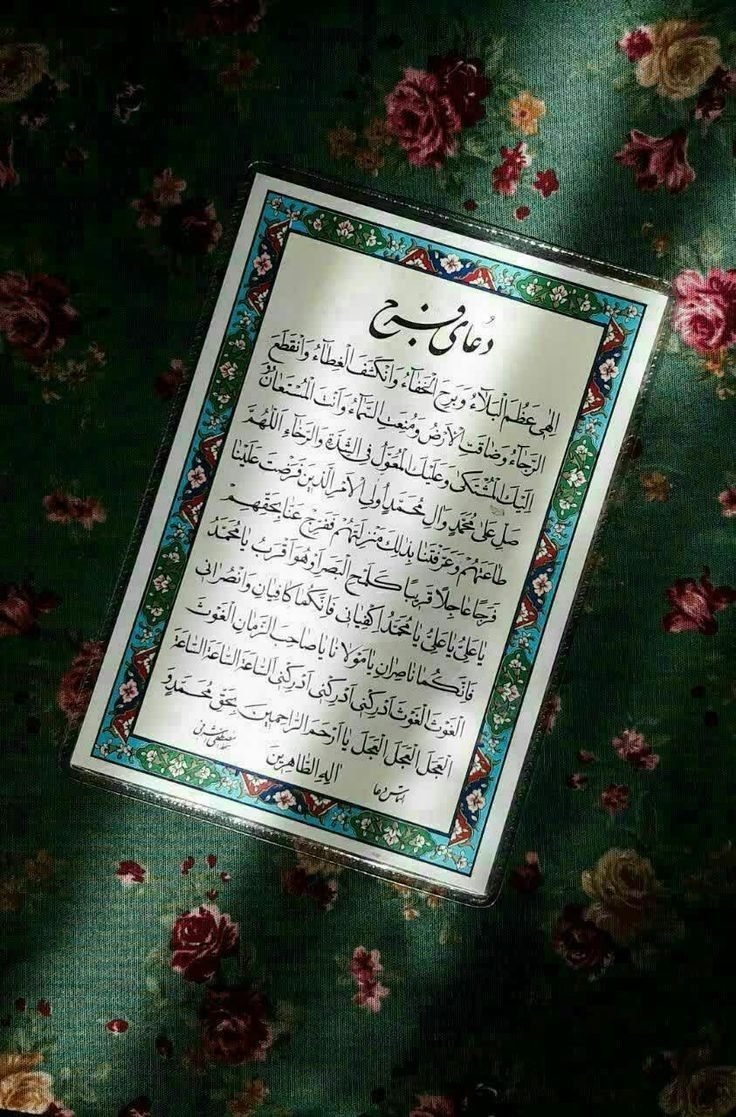 دُعای فرج
اِلٰهی عَظُمَ الْبَلآءُ وَبَرِحَ الْخَفآءُ وَانْكَشَفَ الْغِطآءُ وَانْقَطَعَ
الرَّجآءُ وَضاقَتِ الْاَرْضُ وَمُنِعَتِ السَّمآءُ وَاَنْتَ الْمُسْتَعانُ
وَاِلَيْكَ الْمُشْتَكىٰ وَعَلَيْكَ الْمُعَوَّلُ فِی الشِّدَّةِ وَالرَّخآءِ اَللّٰهُمَّ
صَلِّ عَلىٰ مُحَمَّدٍ وَّالِ مُحَمَّدٍ اُولِی الْاَمْرِ الَّذينَ فَرَضْتَ عَلَيْنا
طاعَتَهُمْ وَعَرَّفْتَنا بِذٰلِكَ مَنْزِلَتَهُمْ فَفَرِّجْ عَنّا بِحَقِّهِمْ
فَرَجًا عاجِلًا قَريبًا كَلَمْحِ الْبَصَرِ اَوْ هُوَ اَقْرَبُ يا مُحَمَّدُ
يا عَلِیُّ يا عَلِیُّ يا مُحَمَّدُ اِكْفِيانی فَاِنَّكُما كافِيانِ وَانْصُرانی
فَاِنَّكُما ناصِرانِ يا مَوْلانا يا صاحِبَ الزَّمانِ الْغَوْثَ
الْغَوْثَ الْغَوْثَ اَدْرِكْنی اَدْرِكْنی اَدْرِكْنی اَلسّاعَةَ السّاعَةَ السّاعَةَ
الْعَجَلَ الْعَجَلَ الْعَجَلَ يا اَرْحَمَ الرّاحِمينَ بِحَقِّ مُحَمَّدٍ وَ
الِهِ الطّاهِرينَ
التماس دعا